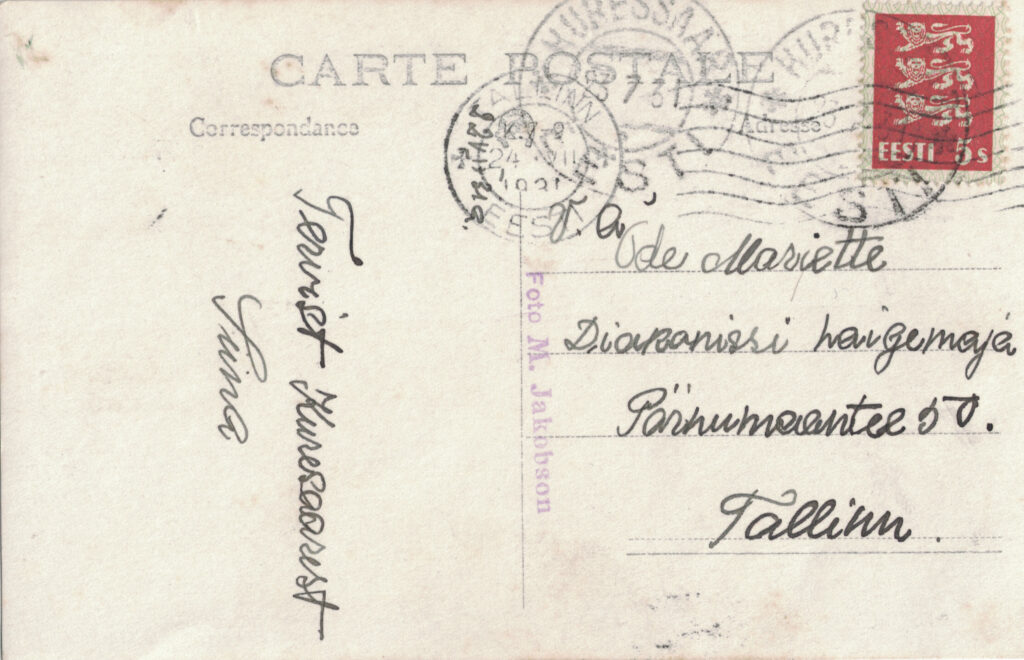 CARTE POSTALE
Correspondance
Adresse
KURESSAARE
7 31
EESTI
TALLINN
24 VII
1931
EESTI
EESTI 5 s
Tervist Kuresaarest
Õde Mariette
Diakonissi haigemaja
Pärnumaantee 50.
Tallinn.
Foto M. Jakobson